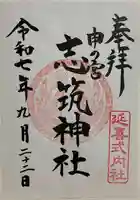 奉拝
申の宮
志筑神社
延喜式内社
令和七年九月二十二日